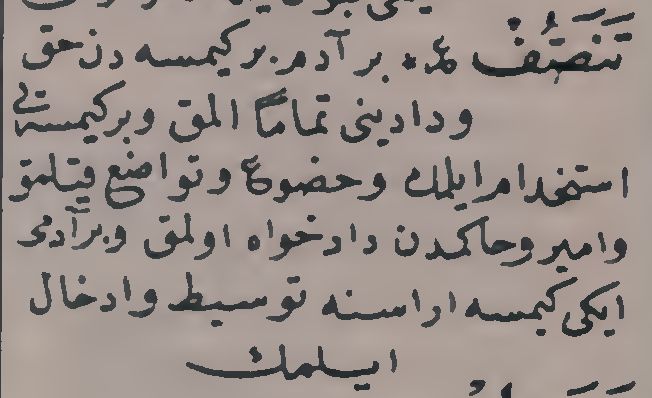 تَنَصُّفْ ع م بر آدم بر كیمسه دن حق
ودادینی تماماً المق وبركیمسه یی
استخدام ایلمك وخضوع وتواضع قیلمق
وامیر وحاكمدن دادخواه اولمق وبرآدمی
ایكی كیمسه اراسنه توسیط وادخال
ایلمك